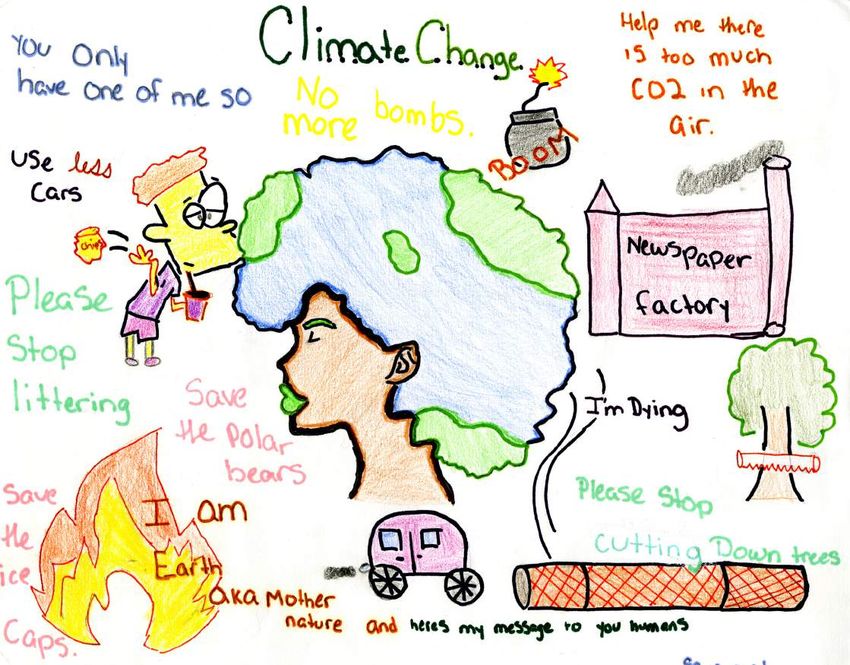 Climate Change
You only
have one of me so
No
more bombs.
BOOM
Help me there
is too much
CO2 in the
air.
Use less
cars
chips
Newspaper
factory
Please
Stop
littering
Save
the Polar
bears
I'm Dying
Please Stop
cutting Down trees
Save
the
ice
Caps.
I am
Earth
aka Mother
nature and heres my message to you humans